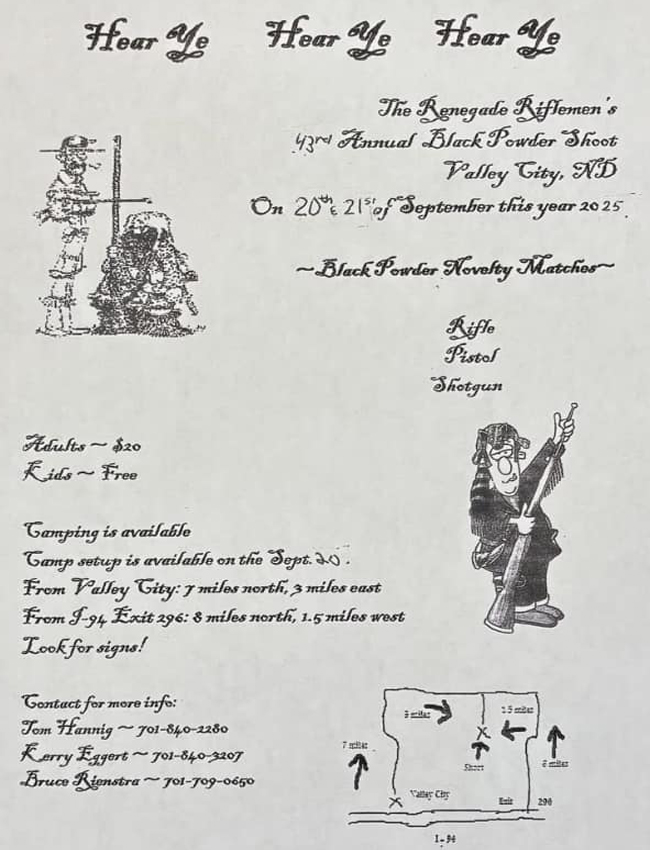 Hear Ye Hear Ye Hear Ye
The Renegade Riflemen's
43rd Annual Black Powder Shoot
Valley City, ND
On 20th & 21st of September this year 2025.
~Black Powder Novelty Matches~
Rifle
Pistol
Shotgun
Adults ~ $20
Kids ~ Free
Camping is available
Camp setup is available on the Sept. 20.
From Valley City: 7 miles north, 3 miles east
From I-94 Exit 296: 8 miles north, 1.5 miles west
Look for signs!
Contact for more info:
Tom Hannig ~ 701-840-2280
Kerry Eggert ~ 701-840-3207
Bruce Rienstra ~ 701-709-0650
3 miles
1.5 miles
7 miles
Shoot
8 miles
Valley City
Exit 296
I-94